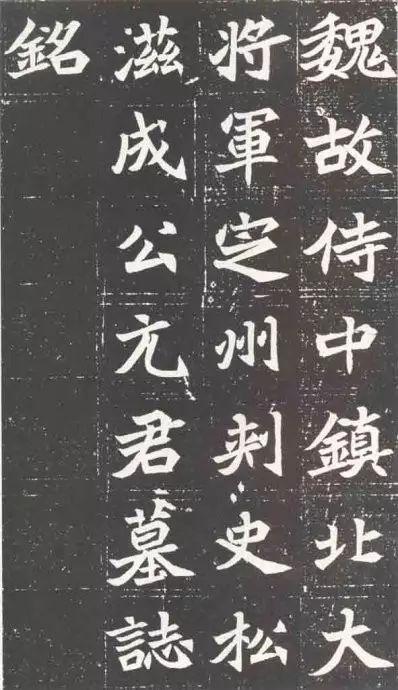 魏故侍中鎮北大
将軍定州刺史松
滋成公元君墓誌
銘